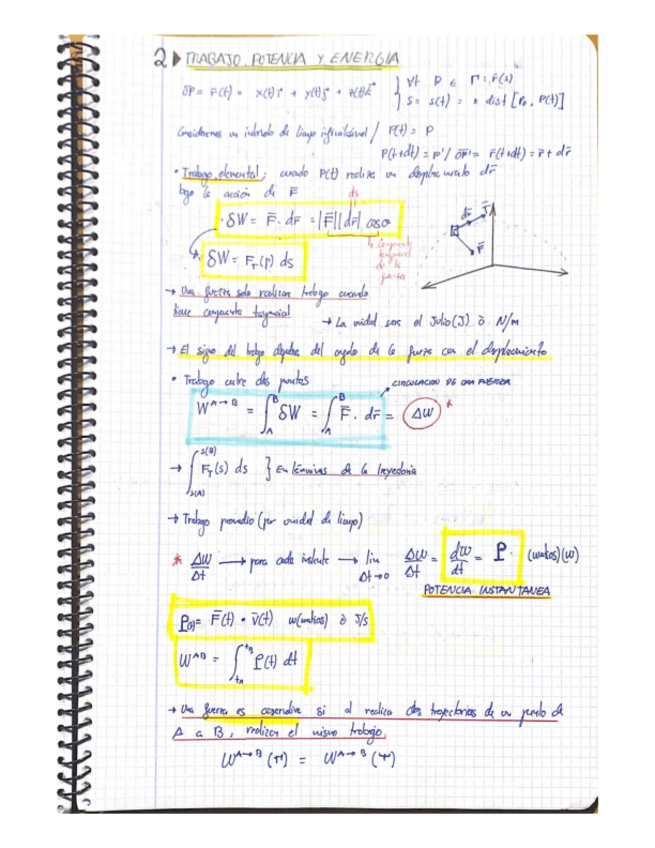 2 ▶ TRABAJO, POTENCIA Y ENERGIA
O̅P̅ = r̅(t) = x(t)i + y(t)j + z(t)k } ∀t P ∈ Γ: r̅(s)
s = s(t) = ± dist [P₀, P(t)]
Consideramos un intervalo de tiempo infinitesimal / P(t) = P
P(t+dt) = P' / O̅P̅' = r̅(t+dt) = r̅ + dr̅
• Trabajo elemental: cuando P(t) realiza un desplazamiento dr̅
bajo la acción de F̅
ds
• δW = F̅ · dr̅ = |F̅||dr̅| cosθ
↳ componente tangencial de la fuerza
δW = F_T(r) ds
dr̅
F̅
→ Una fuerza solo realizar trabajo cuando
tiene componente tangencial
→ La unidad sera el Julio (J) ò N/m
→ El signo del trabajo depende del angulo de la fuerza con el desplazamiento
• Trabajo entre dos puntos
CIRCULACION DE UNA FUERZA
W^{A→B} = ∫_A^B δW = ∫_A^B F̅ · dr̅ = ΔW *
→ ∫_{s(A)}^{s(B)} F_T(s) ds } En términos de la trayectoria
→ Trabajo promedio (por unidad de tiempo)
* ΔW/Δt → para cada instante → lim_{Δt→0} ΔW/Δt = dW/dt = P · (watios) (w)
POTENCIA INSTANTANEA
P(t) = F̅(t) • v̅(t) w(watios) ò J/s
W^{AB} = ∫_{tA}^{tB} P(t) dt
→ Una fuerza es conservativa si al realizar dos trayectorias de un punto de
A a B, realizan el mismo trabajo.